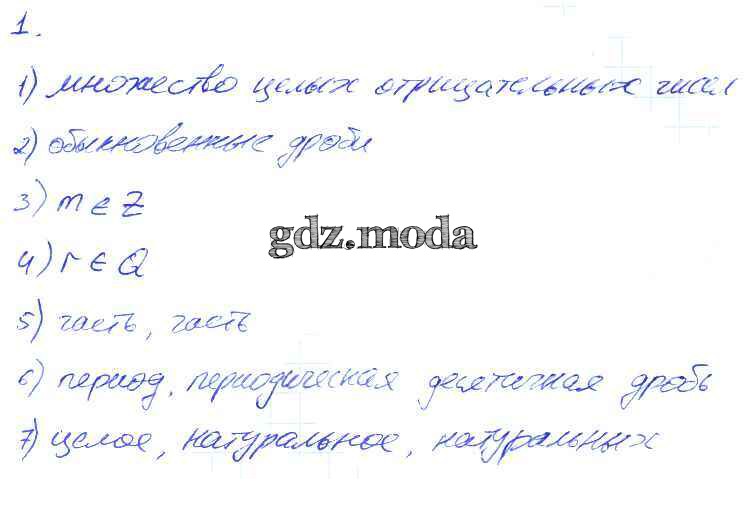 1.
1) множество целых отрицательных чисел
2) обыкновенные дроби
3) m ∈ Z
gdz.moda
4) r ∈ Q
5) часть, часть
6) период, периодическая десятичная дробь
7) целое, натуральное, натуральных